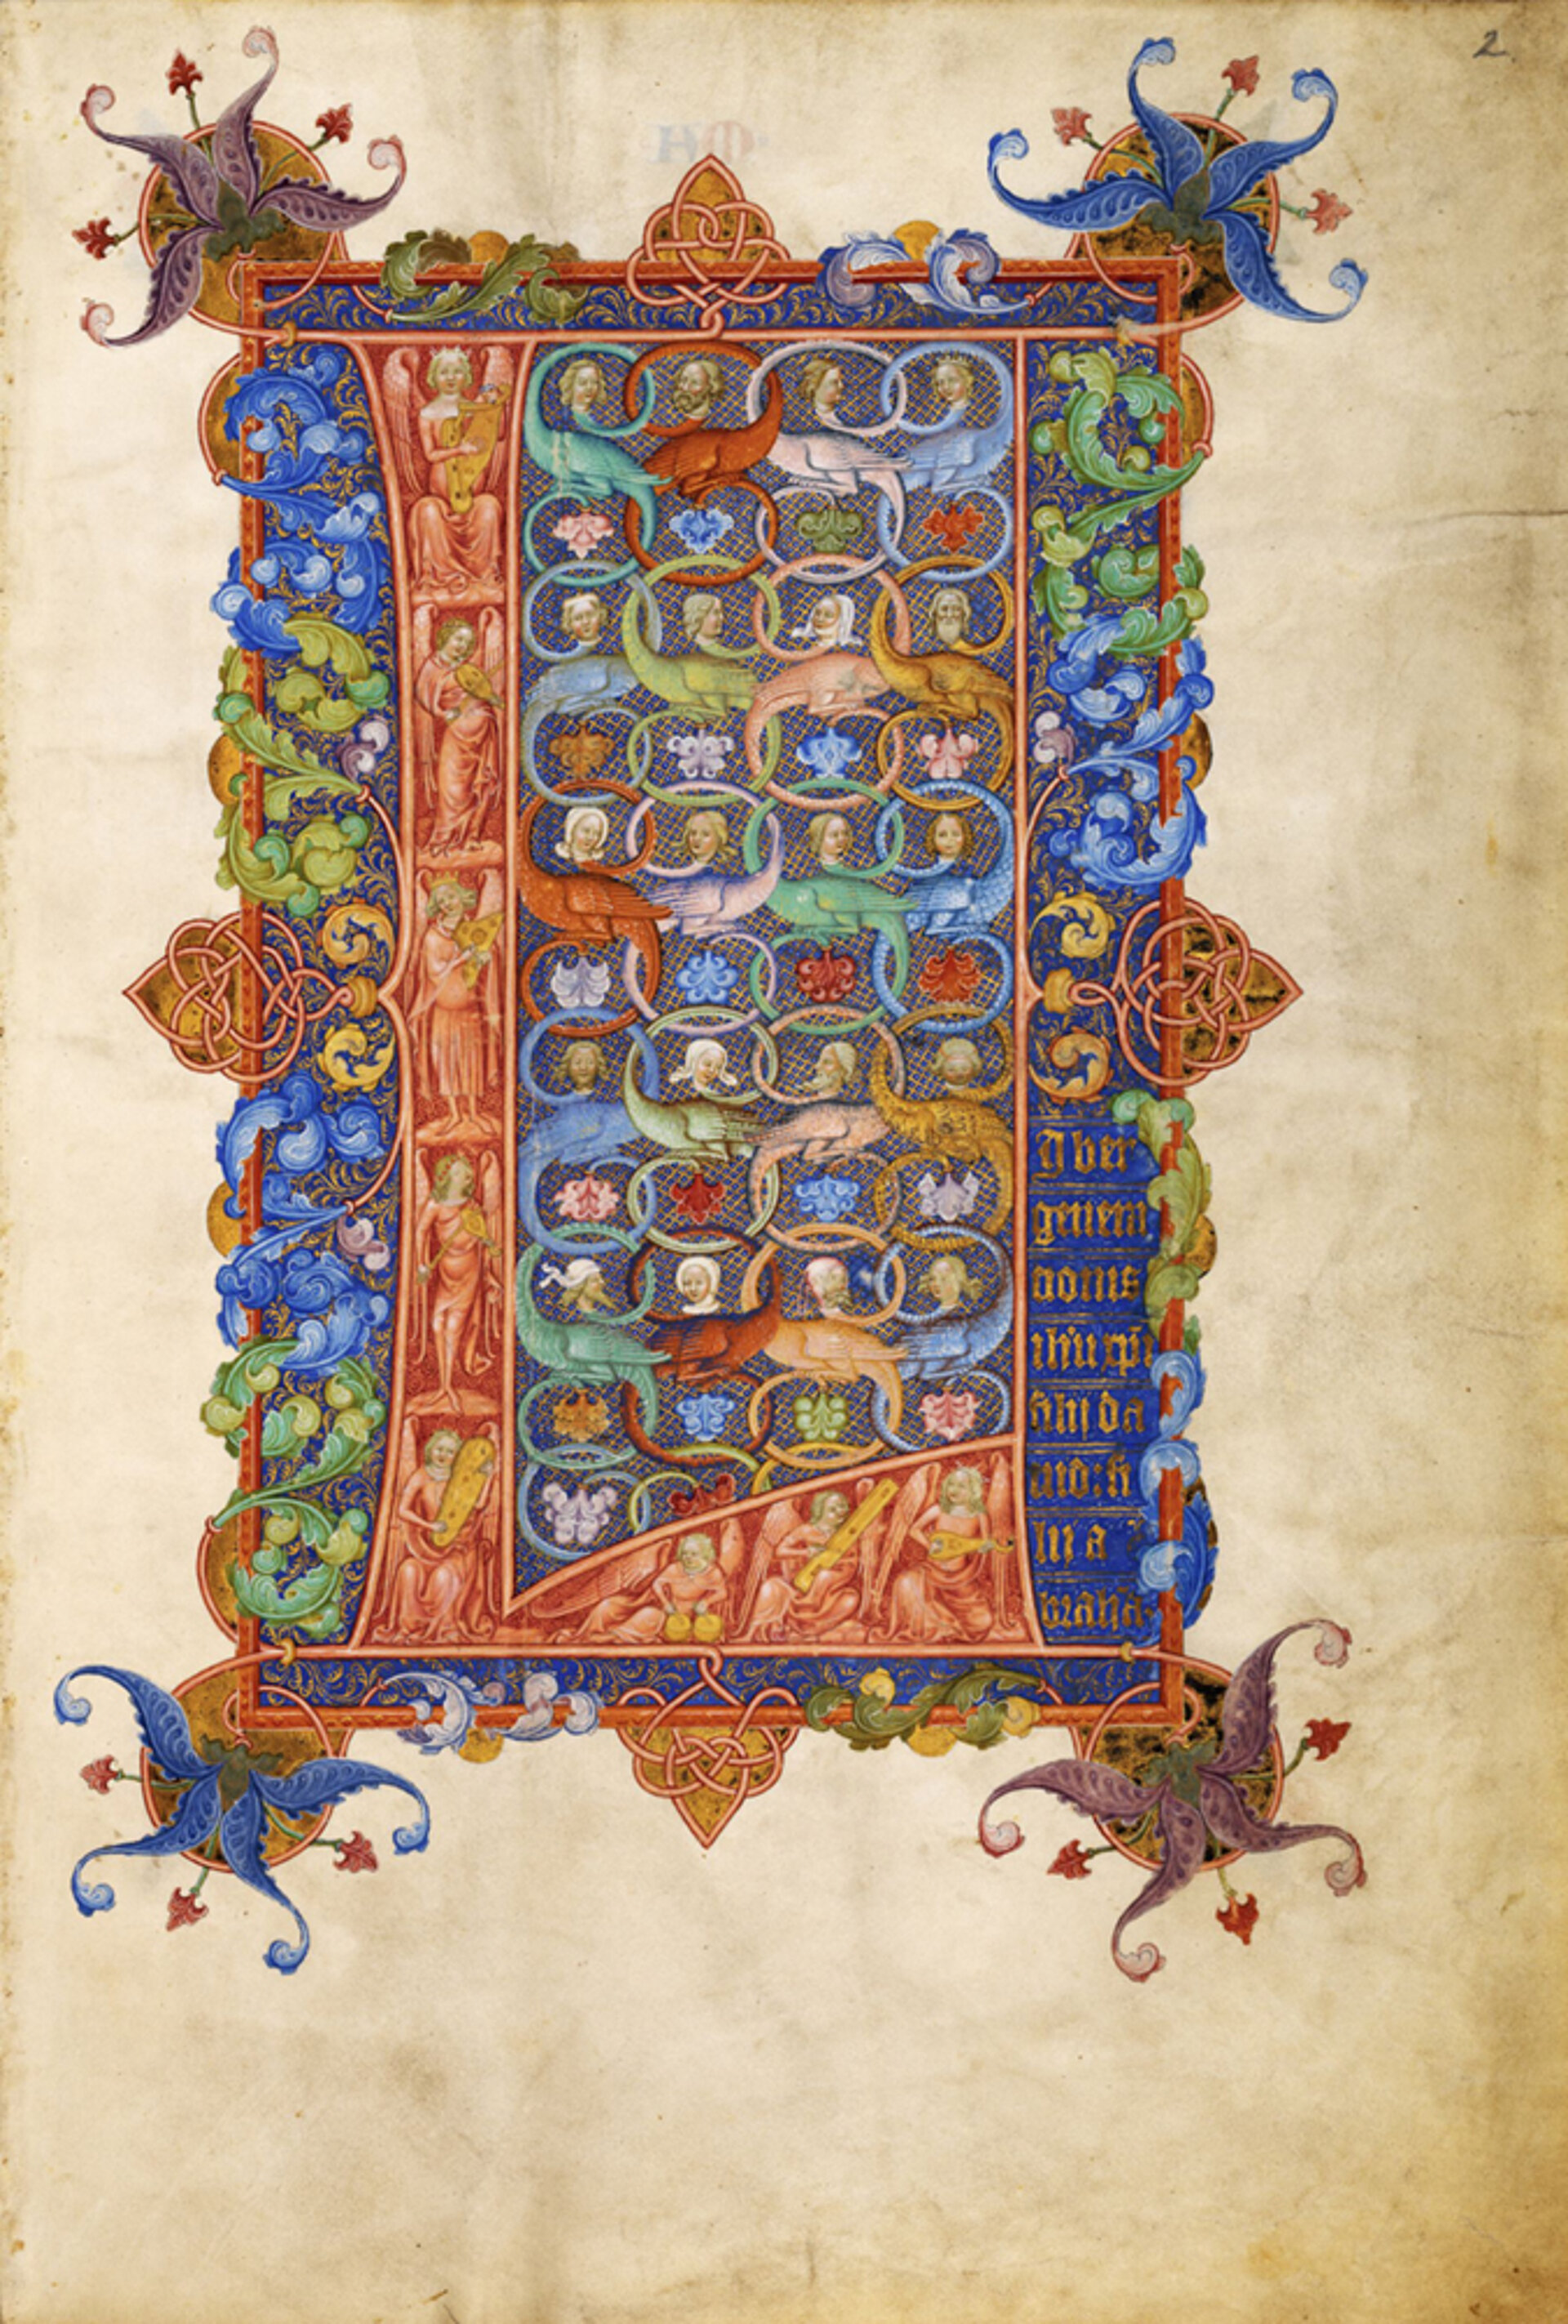 2
L
iber
genera
tionis
ih'u xp̄i
filij da
uid: fi
lij a
brahā